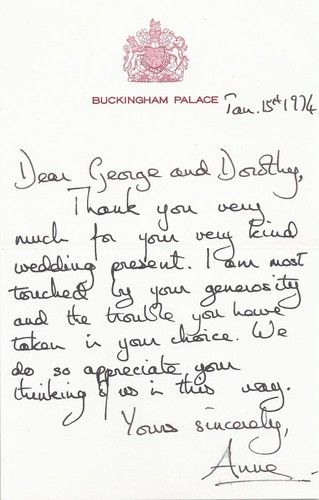 BUCKINGHAM PALACE
Jan. 15th 1974
Dear George and Dorothy,
Thank you very
much for your very kind
wedding present. I am most
touched by your generosity
and the trouble you have
taken in your choice. We
do so appreciate your
thinking of us in this way.
Yours sincerely,
Anne